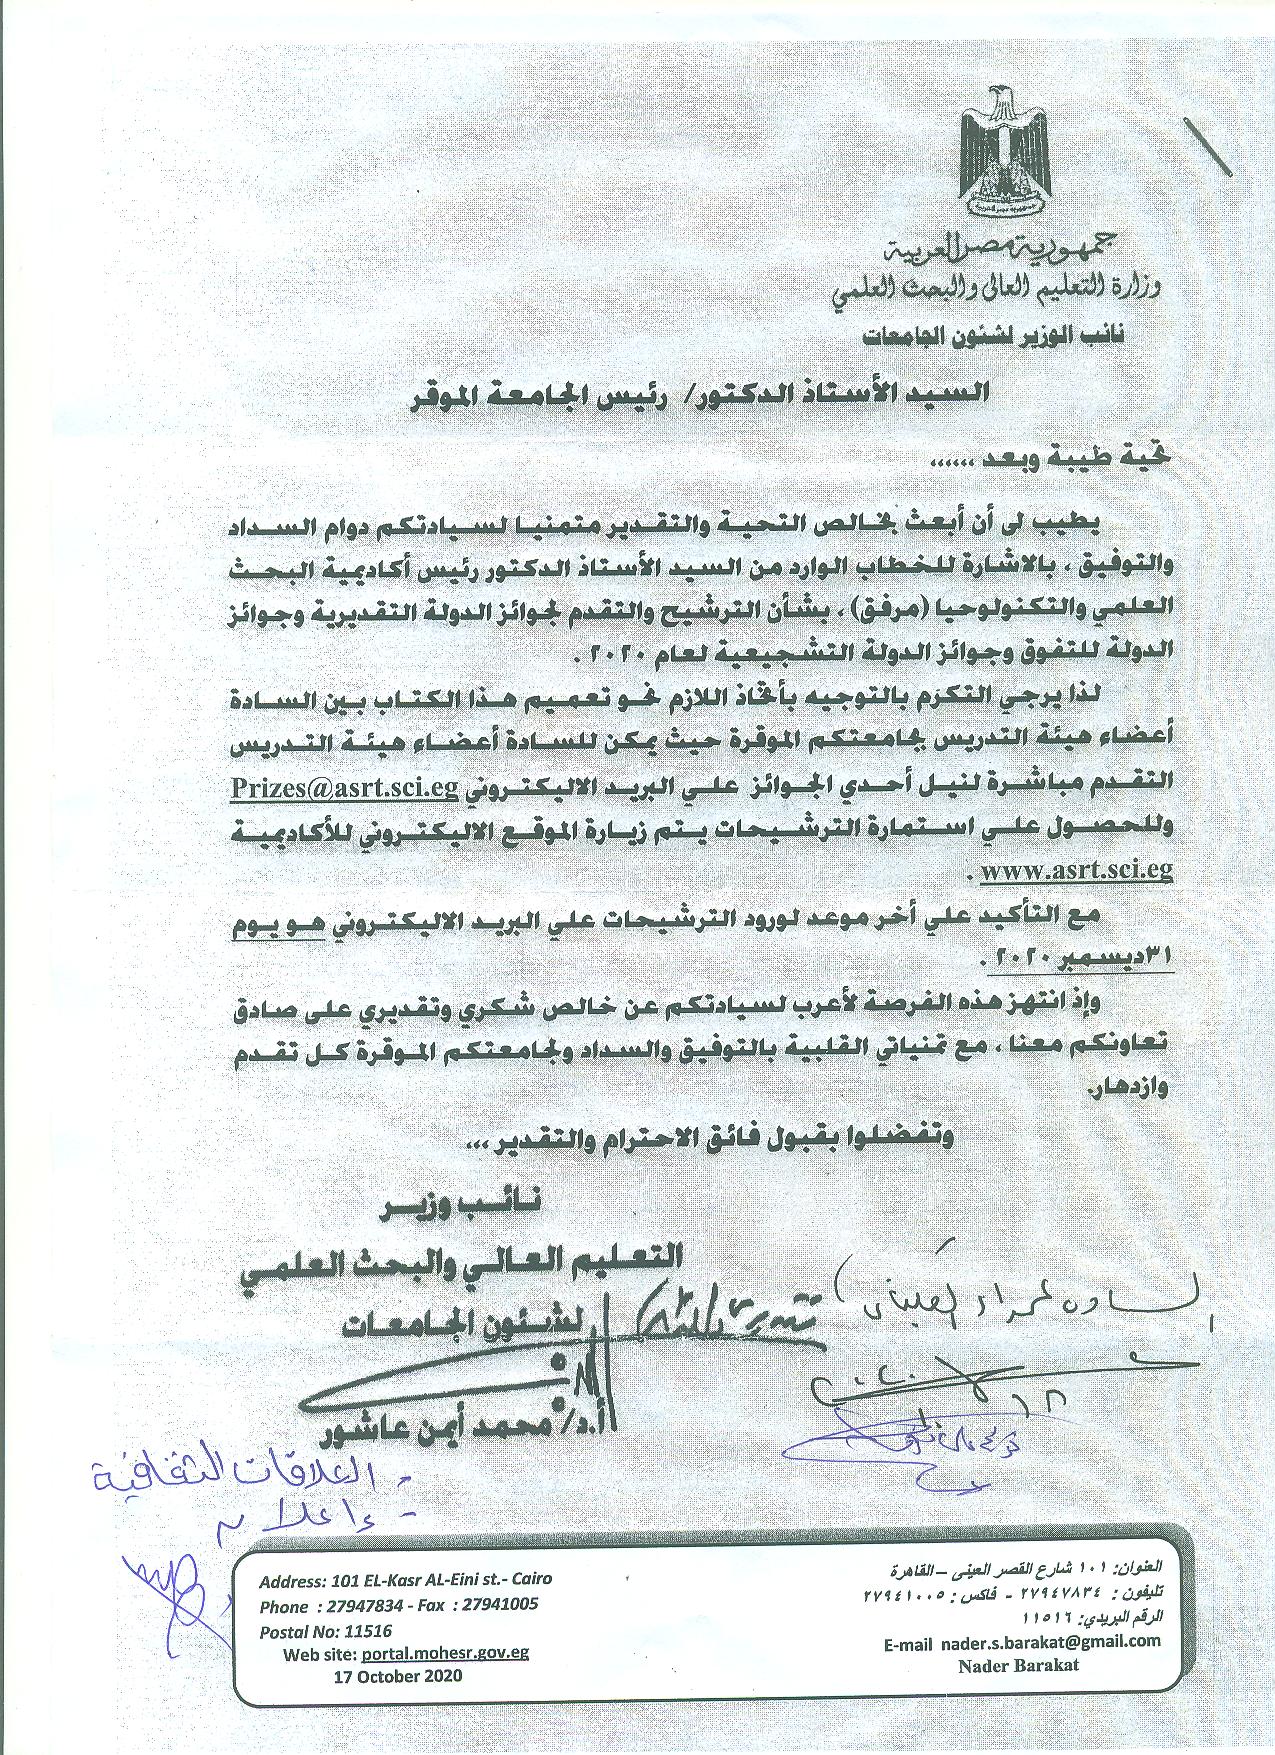 جمهورية مصر العربية
جمهورية مصر العربية
وزارة التعليم العالى والبحث العلمي
نائب الوزير لشئون الجامعات
السيد الأستاذ الدكتور/ رئيس الجامعة الموقر
تحية طيبة وبعد ......
يطيب لى أن أبعث بخالص التحية والتقدير متمنيا لسيادتكم دوام السداد
والتوفيق ، بالاشارة للخطاب الوارد من السيد الأستاذ الدكتور رئيس أكاديمية البحث
العلمي والتكنولوجيا (مرفق) ، بشأن الترشيح والتقدم لجوائز الدولة التقديرية وجوائز
الدولة للتفوق وجوائز الدولة التشجيعية لعام ٢٠٢٠ .
لذا يرجي التكرم بالتوجيه بأتخاذ اللازم نحو تعميم هذا الكتاب بين السادة
أعضاء هيئة التدريس بجامعتكم الموقرة حيث يمكن للسادة أعضاء هيئة التدريس
التقدم مباشرة لنيل أحدي الجوائز علي البريد الاليكتروني Prizes@asrt.sci.eg
وللحصول علي استمارة الترشيحات يتم زيارة الموقع الاليكتروني للأكاديمية
www.asrt.sci.eg .
مع التأكيد علي أخر موعد لورود الترشيحات علي البريد الاليكتروني هو يوم
٣١ديسمبر ٢٠٢٠ .
وإذ انتهز هذه الفرصة لأعرب لسيادتكم عن خالص شكري وتقديري على صادق
تعاونكم معنا ، مع تمنياتي القلبية بالتوفيق والسداد ولجامعتكم الموقرة كل تقدم
وازدهار.
وتفضلوا بقبول فائق الاحترام والتقدير ...
نائب وزير
التعليم العالي والبحث العلمي
لشئون الجامعات
أ.د/ محمد أيمن عاشور
- العلاقات الثقافية
- إعلام
العنوان: ١٠١ شارع القصر العينى – القاهرة
تليفون : ٢٧٩٤٧٨٣٤ - فاكس : ٢٧٩٤١٠٠٥
الرقم البريدي: ١١٥١٦
E-mail nader.s.barakat@gmail.com
Nader Barakat
Address: 101 EL-Kasr AL-Eini st.- Cairo
Phone : 27947834 - Fax : 27941005
Postal No: 11516
Web site: portal.mohesr.gov.eg
17 October 2020